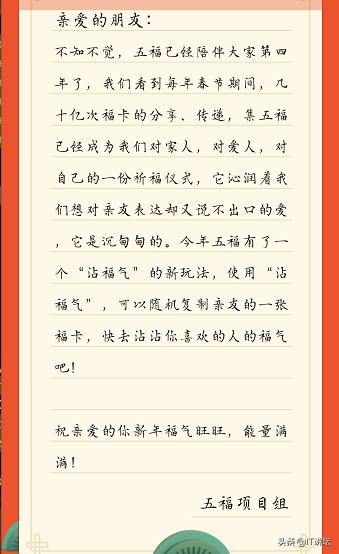 亲爱的朋友：
不知不觉，五福已经陪伴大家第四
年了，我们看到每年春节期间，几
十亿次福卡的分享、传递，集五福
已经成为我们对家人，对爱人，对
自己的一份祈福仪式，它沁润着我
们想对亲友表达却又说不出口的爱
，它是沉甸甸的。今年五福有了一
个“沾福气”的新玩法，使用“沾
福气”，可以随机复制亲友的一张
福卡，快去沾沾你喜欢的人的福气
吧！
祝亲爱的你新年福气旺旺，能量满
满！
五福项目组
头条@IT讲坛